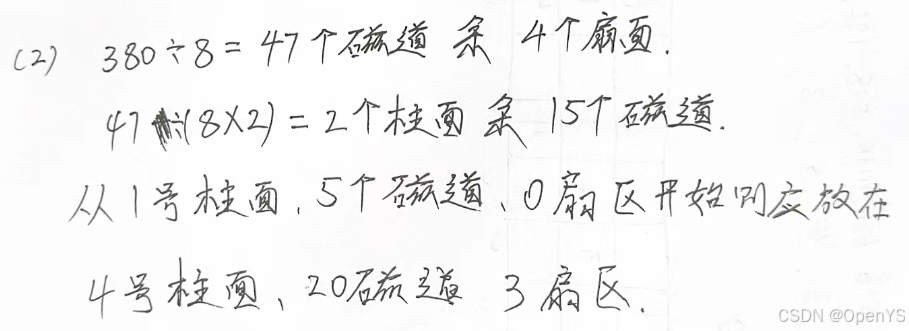 (2) 380÷8=47个磁道 余 4个扇面.
47÷(8×2)=2个柱面 余 15个磁道.
从1号柱面、5个磁道、0扇区开始则应放在
4号柱面、20磁道 3扇区.
CSDN @OpenYS